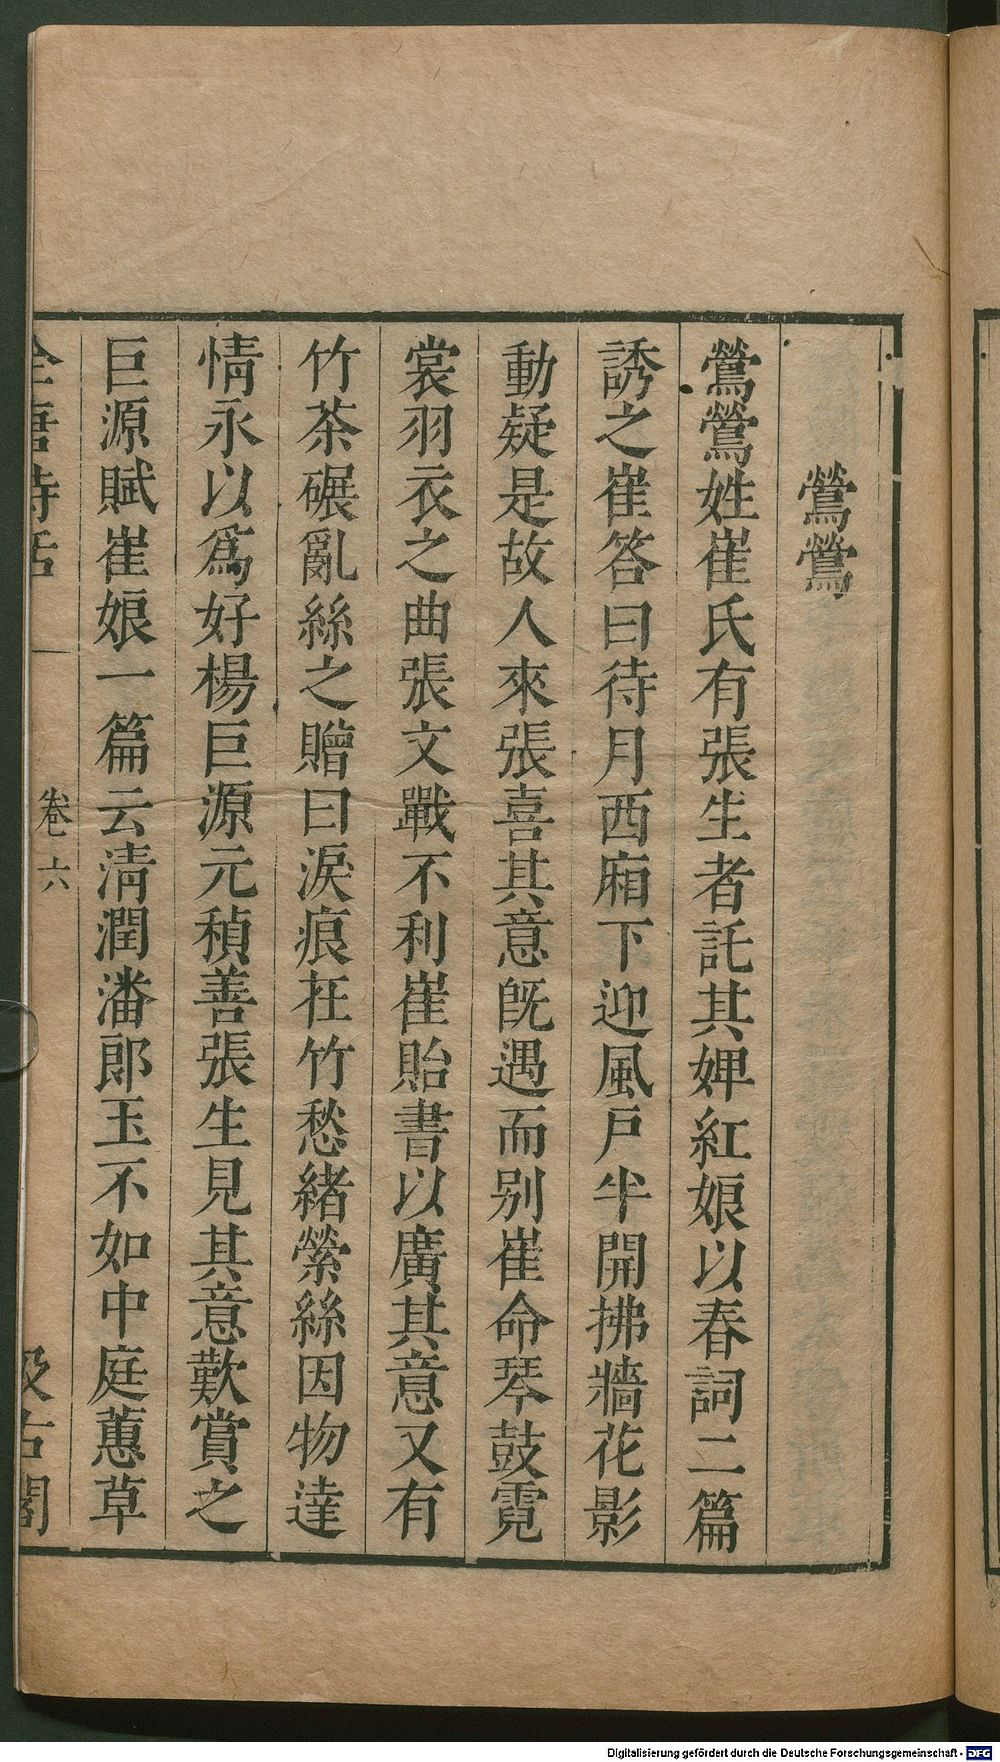 鶯鶯
鶯鶯姓崔氏有張生者託其婢紅娘以春詞二篇
誘之崔答曰待月西廂下迎風戶半開拂牆花影
動疑是故人來張喜其意旣遇而別崔命琴鼓霓
裳羽衣之曲張文戰不利崔貽書以廣其意又有
竹茶碾亂絲之贈曰淚痕在竹愁緒縈絲因物達
情永以爲好楊巨源元稹善張生見其意歎賞之
巨源賦崔娘一篇云清潤潘郞玉不如中庭蕙草
全唐詩話
卷六
汲古閣
Digitalisierung gefördert durch die Deutsche Forschungsgemeinschaft - DFG